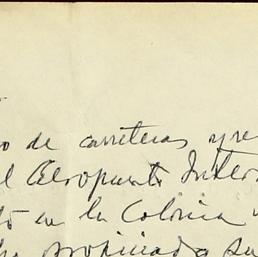 o de carreteras y re
l Aeropuerto Intern
to en la Colonia
propinada su